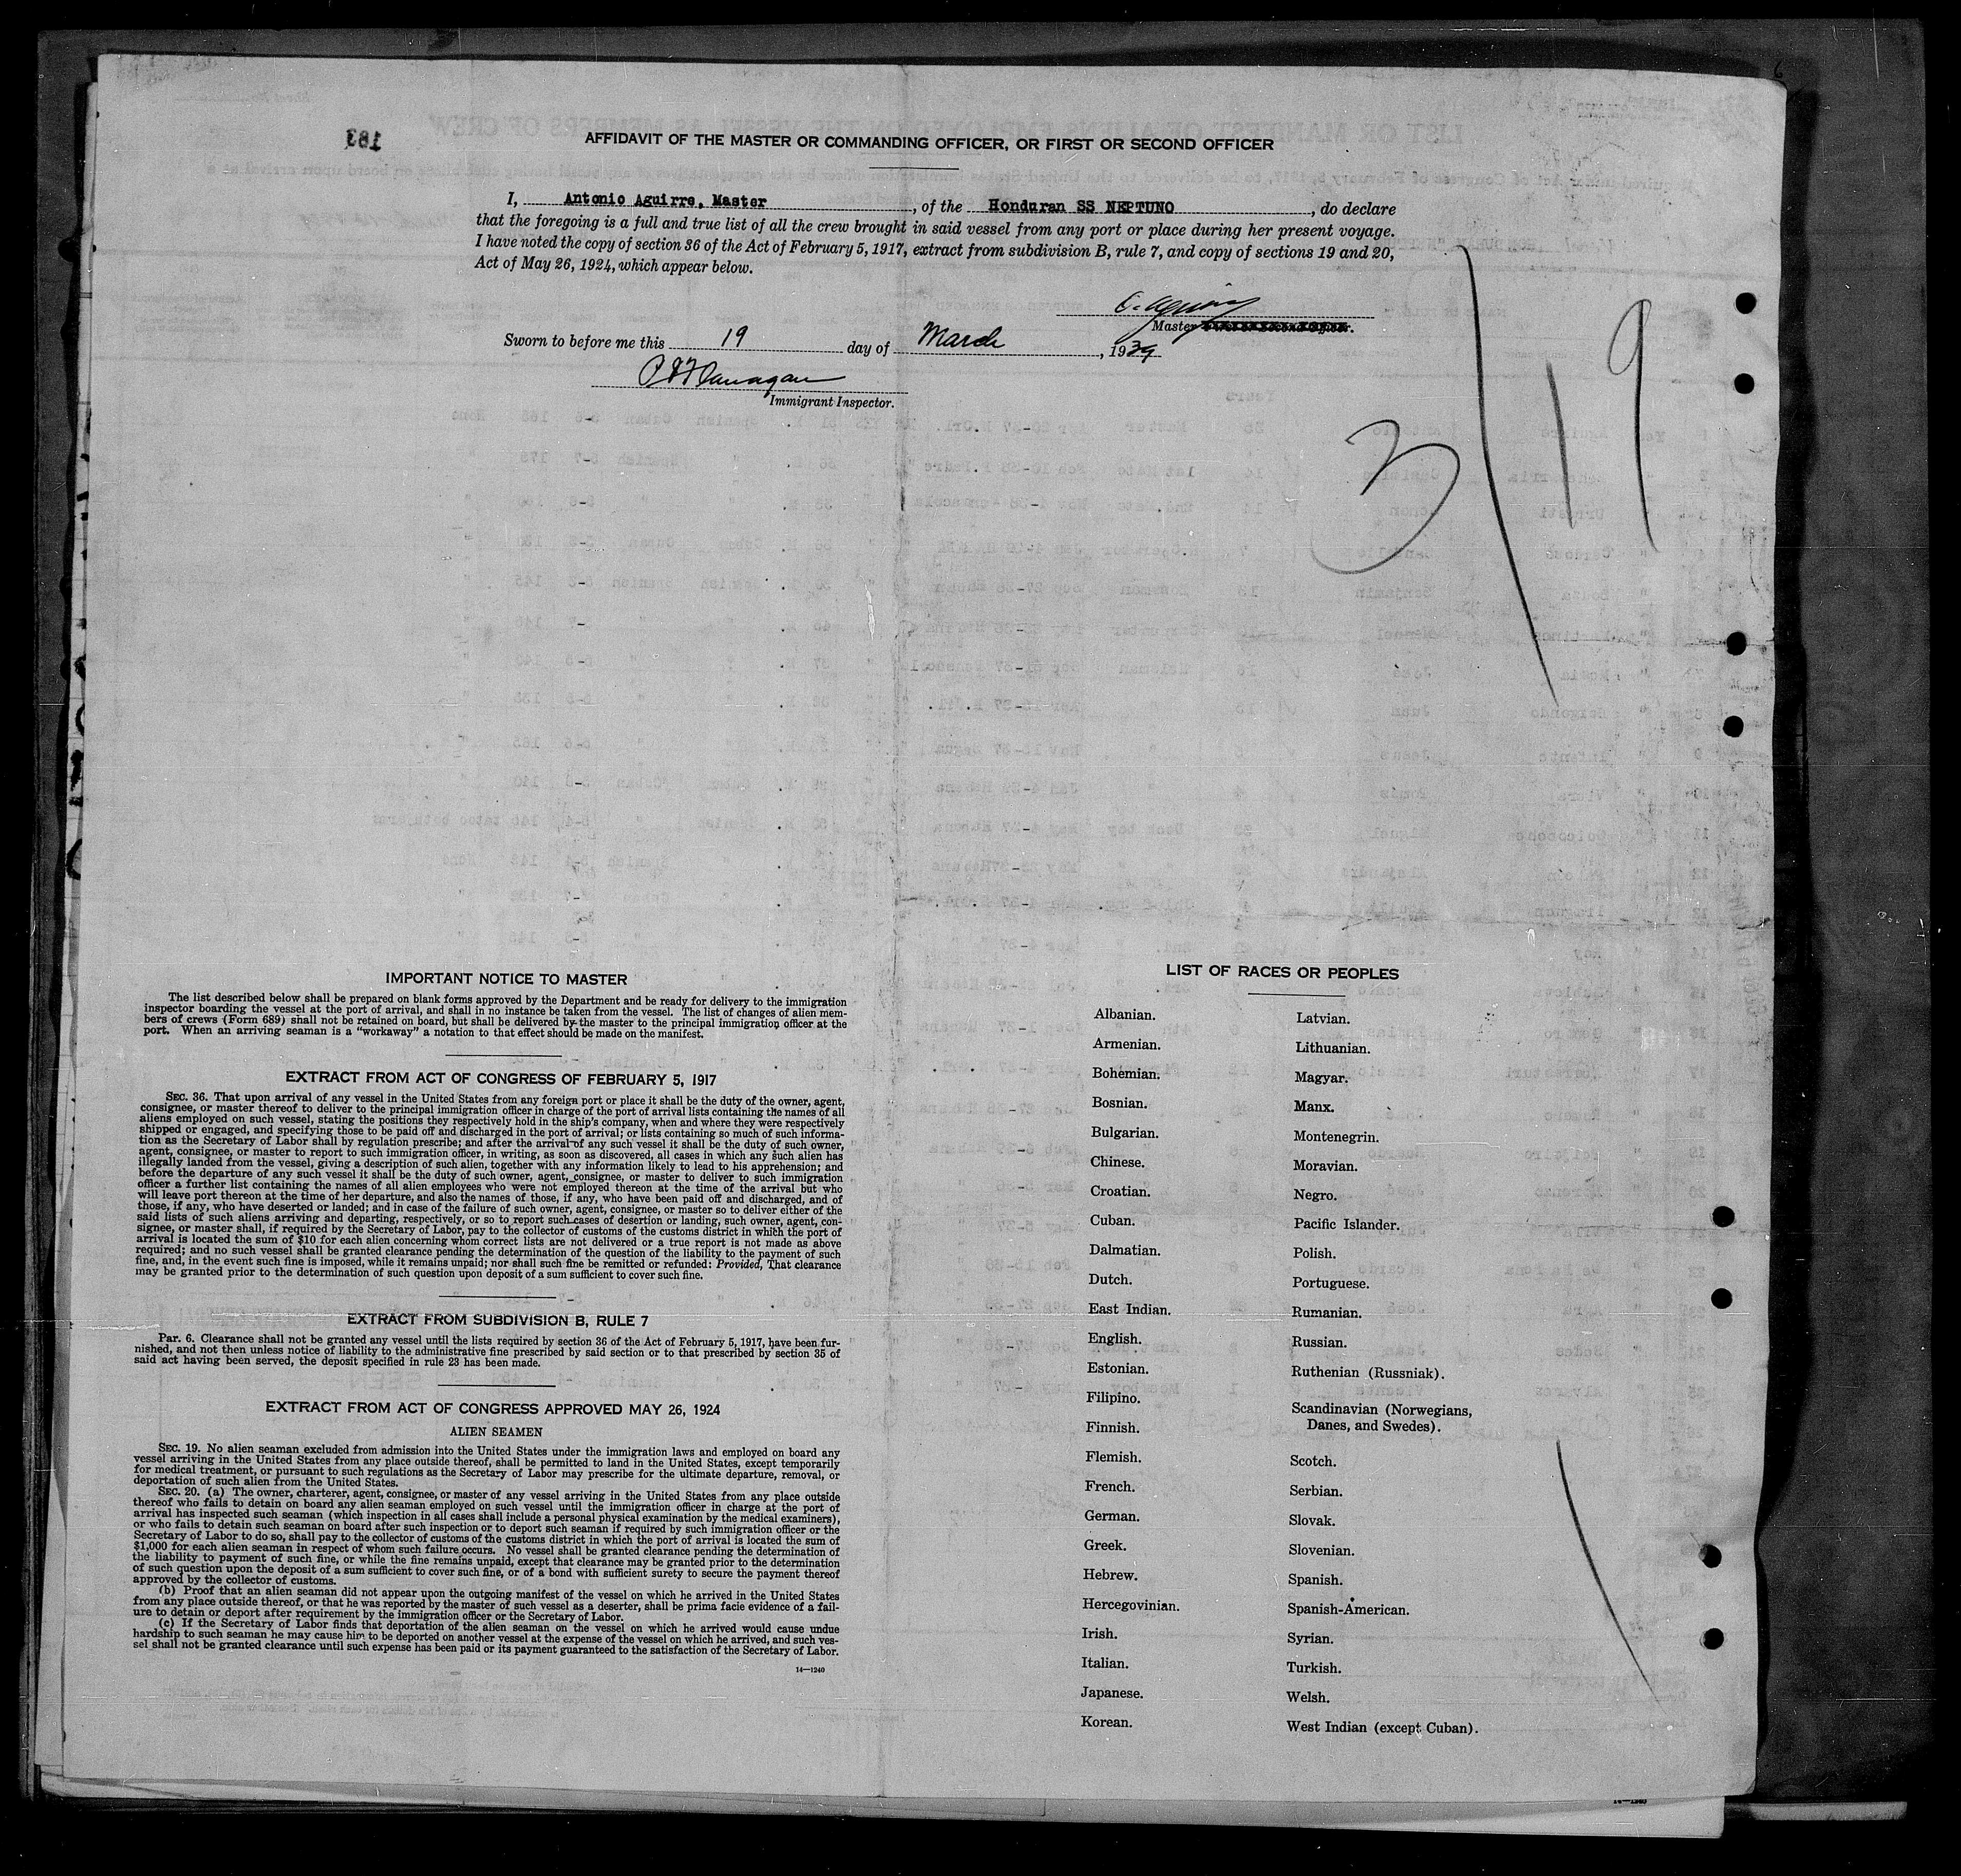 183
AFFIDAVIT OF THE MASTER OR COMMANDING OFFICER, OR FIRST OR SECOND OFFICER
I, Antonio Aguirre, Master, of the Honduran SS NEPTUNO, do declare
that the foregoing is a full and true list of all the crew brought in said vessel from any port or place during her present voyage.
I have noted the copy of section 36 of the Act of February 5, 1917, extract from subdivision B, rule 7, and copy of sections 19 and 20,
Act of May 26, 1924, which appear below.
Master
Sworn to before me this 19 day of March, 1939
Immigrant Inspector.
3/19
IMPORTANT NOTICE TO MASTER
The list described below shall be prepared on blank forms approved by the Department and be ready for delivery to the immigration
inspector boarding the vessel at the port of arrival, and shall in no instance be taken from the vessel. The list of changes of alien mem-
bers of crews (Form 689) shall not be retained on board, but shall be delivered by the master to the principal immigration officer at the
port. When an arriving seaman is a "workaway" a notation to that effect should be made on the manifest.
EXTRACT FROM ACT OF CONGRESS OF FEBRUARY 5, 1917
SEC. 36. That upon arrival of any vessel in the United States from any foreign port or place it shall be the duty of the owner, agent,
consignee, or master thereof to deliver to the principal immigration officer in charge of the port of arrival lists containing the names of all
aliens employed on such vessel, stating the positions they respectively hold in the ship's company, when and where they were respectively
shipped or engaged, and specifying those to be paid off and discharged in the port of arrival; or lists containing so much of such informa-
tion as the Secretary of Labor shall by regulation prescribe; and after the arrival of any such vessel it shall be the duty of such owner,
agent, consignee, or master to report to such immigration officer, in writing, as soon as discovered, all cases in which any such alien has
illegally landed from the vessel, giving a description of such alien, together with any information likely to lead to his apprehension; and
before the departure of any such vessel it shall be the duty of such owner, agent, consignee, or master to deliver to such immigration
officer a further list containing the names of all alien employees who were not employed thereon at the time of the arrival but who
will leave port thereon at the time of her departure, and also the names of those, if any, who have been paid off and discharged, and of
those, if any, who have deserted or landed; and in case of the failure of such owner, agent, consignee, or master so to deliver either of the
said lists of such aliens arriving and departing, respectively, or so to report such cases of desertion or landing, such owner, agent, con-
signee, or master shall, if required by the Secretary of Labor, pay to the collector of customs of the customs district in which the port of
arrival is located the sum of $10 for each alien concerning whom correct lists are not delivered or a true report is not made as above
required; and no such vessel shall be granted clearance pending the determination of the question of the liability to the payment of such
fine, and, in the event such fine is imposed, while it remains unpaid; nor shall such fine be remitted or refunded: Provided, That clearance
may be granted prior to the determination of such question upon deposit of a sum sufficient to cover such fine.
EXTRACT FROM SUBDIVISION B, RULE 7
Par. 6. Clearance shall not be granted any vessel until the lists required by section 36 of the Act of February 5, 1917, have been fur-
nished, and not then unless notice of liability to the administrative fine prescribed by said section or to that prescribed by section 35 of
said act having been served, the deposit specified in rule 23 has been made.
EXTRACT FROM ACT OF CONGRESS APPROVED MAY 26, 1924
ALIEN SEAMEN
SEC. 19. No alien seaman excluded from admission into the United States under the immigration laws and employed on board any
vessel arriving in the United States from any place outside thereof, shall be permitted to land in the United States, except temporarily
for medical treatment, or pursuant to such regulations as the Secretary of Labor may prescribe for the ultimate departure, removal, or
deportation of such alien from the United States.
SEC. 20. (a) The owner, charterer, agent, consignee, or master of any vessel arriving in the United States from any place outside
thereof who fails to detain on board any alien seaman employed on such vessel until the immigration officer in charge at the port of
arrival has inspected such seaman (which inspection in all cases shall include a personal physical examination by the medical examiners),
or who fails to detain such seaman on board after such inspection or to deport such seaman if required by such immigration officer or the
Secretary of Labor to do so, shall pay to the collector of customs of the customs district in which the port of arrival is located the sum of
$1,000 for each alien seaman in respect of whom such failure occurs. No vessel shall be granted clearance pending the determination of
the liability to payment of such fine, or while the fine remains unpaid, except that clearance may be granted prior to the determination
of such question upon the deposit of a sum sufficient to cover such fine, or of a bond with sufficient surety to secure the payment thereof
approved by the collector of customs.
(b) Proof that an alien seaman did not appear upon the outgoing manifest of the vessel on which he arrived in the United States
from any place outside thereof, or that he was reported by the master of such vessel as a deserter, shall be prima facie evidence of a fail-
ure to detain or deport after requirement by the immigration officer or the Secretary of Labor.
(c) If the Secretary of Labor finds that deportation of the alien seaman on the vessel on which he arrived would cause undue
hardship to such seaman he may cause him to be deported on another vessel at the expense of the vessel on which he arrived, and such ves-
sel shall not be granted clearance until such expense has been paid or its payment guaranteed to the satisfaction of the Secretary of Labor.
14—1240
LIST OF RACES OR PEOPLES
Albanian.
Armenian.
Bohemian.
Bosnian.
Bulgarian.
Chinese.
Croatian.
Cuban.
Dalmatian.
Dutch.
East Indian.
English.
Estonian.
Filipino.
Finnish.
Flemish.
French.
German.
Greek.
Hebrew.
Hercegovinian.
Irish.
Italian.
Japanese.
Korean.
Latvian.
Lithuanian.
Magyar.
Manx.
Montenegrin.
Moravian.
Negro.
Pacific Islander.
Polish.
Portuguese.
Rumanian.
Russian.
Ruthenian (Russniak).
Scandinavian (Norwegians,
Danes, and Swedes).
Scotch.
Serbian.
Slovak.
Slovenian.
Spanish.
Spanish-American.
Syrian.
Turkish.
Welsh.
West Indian (except Cuban).